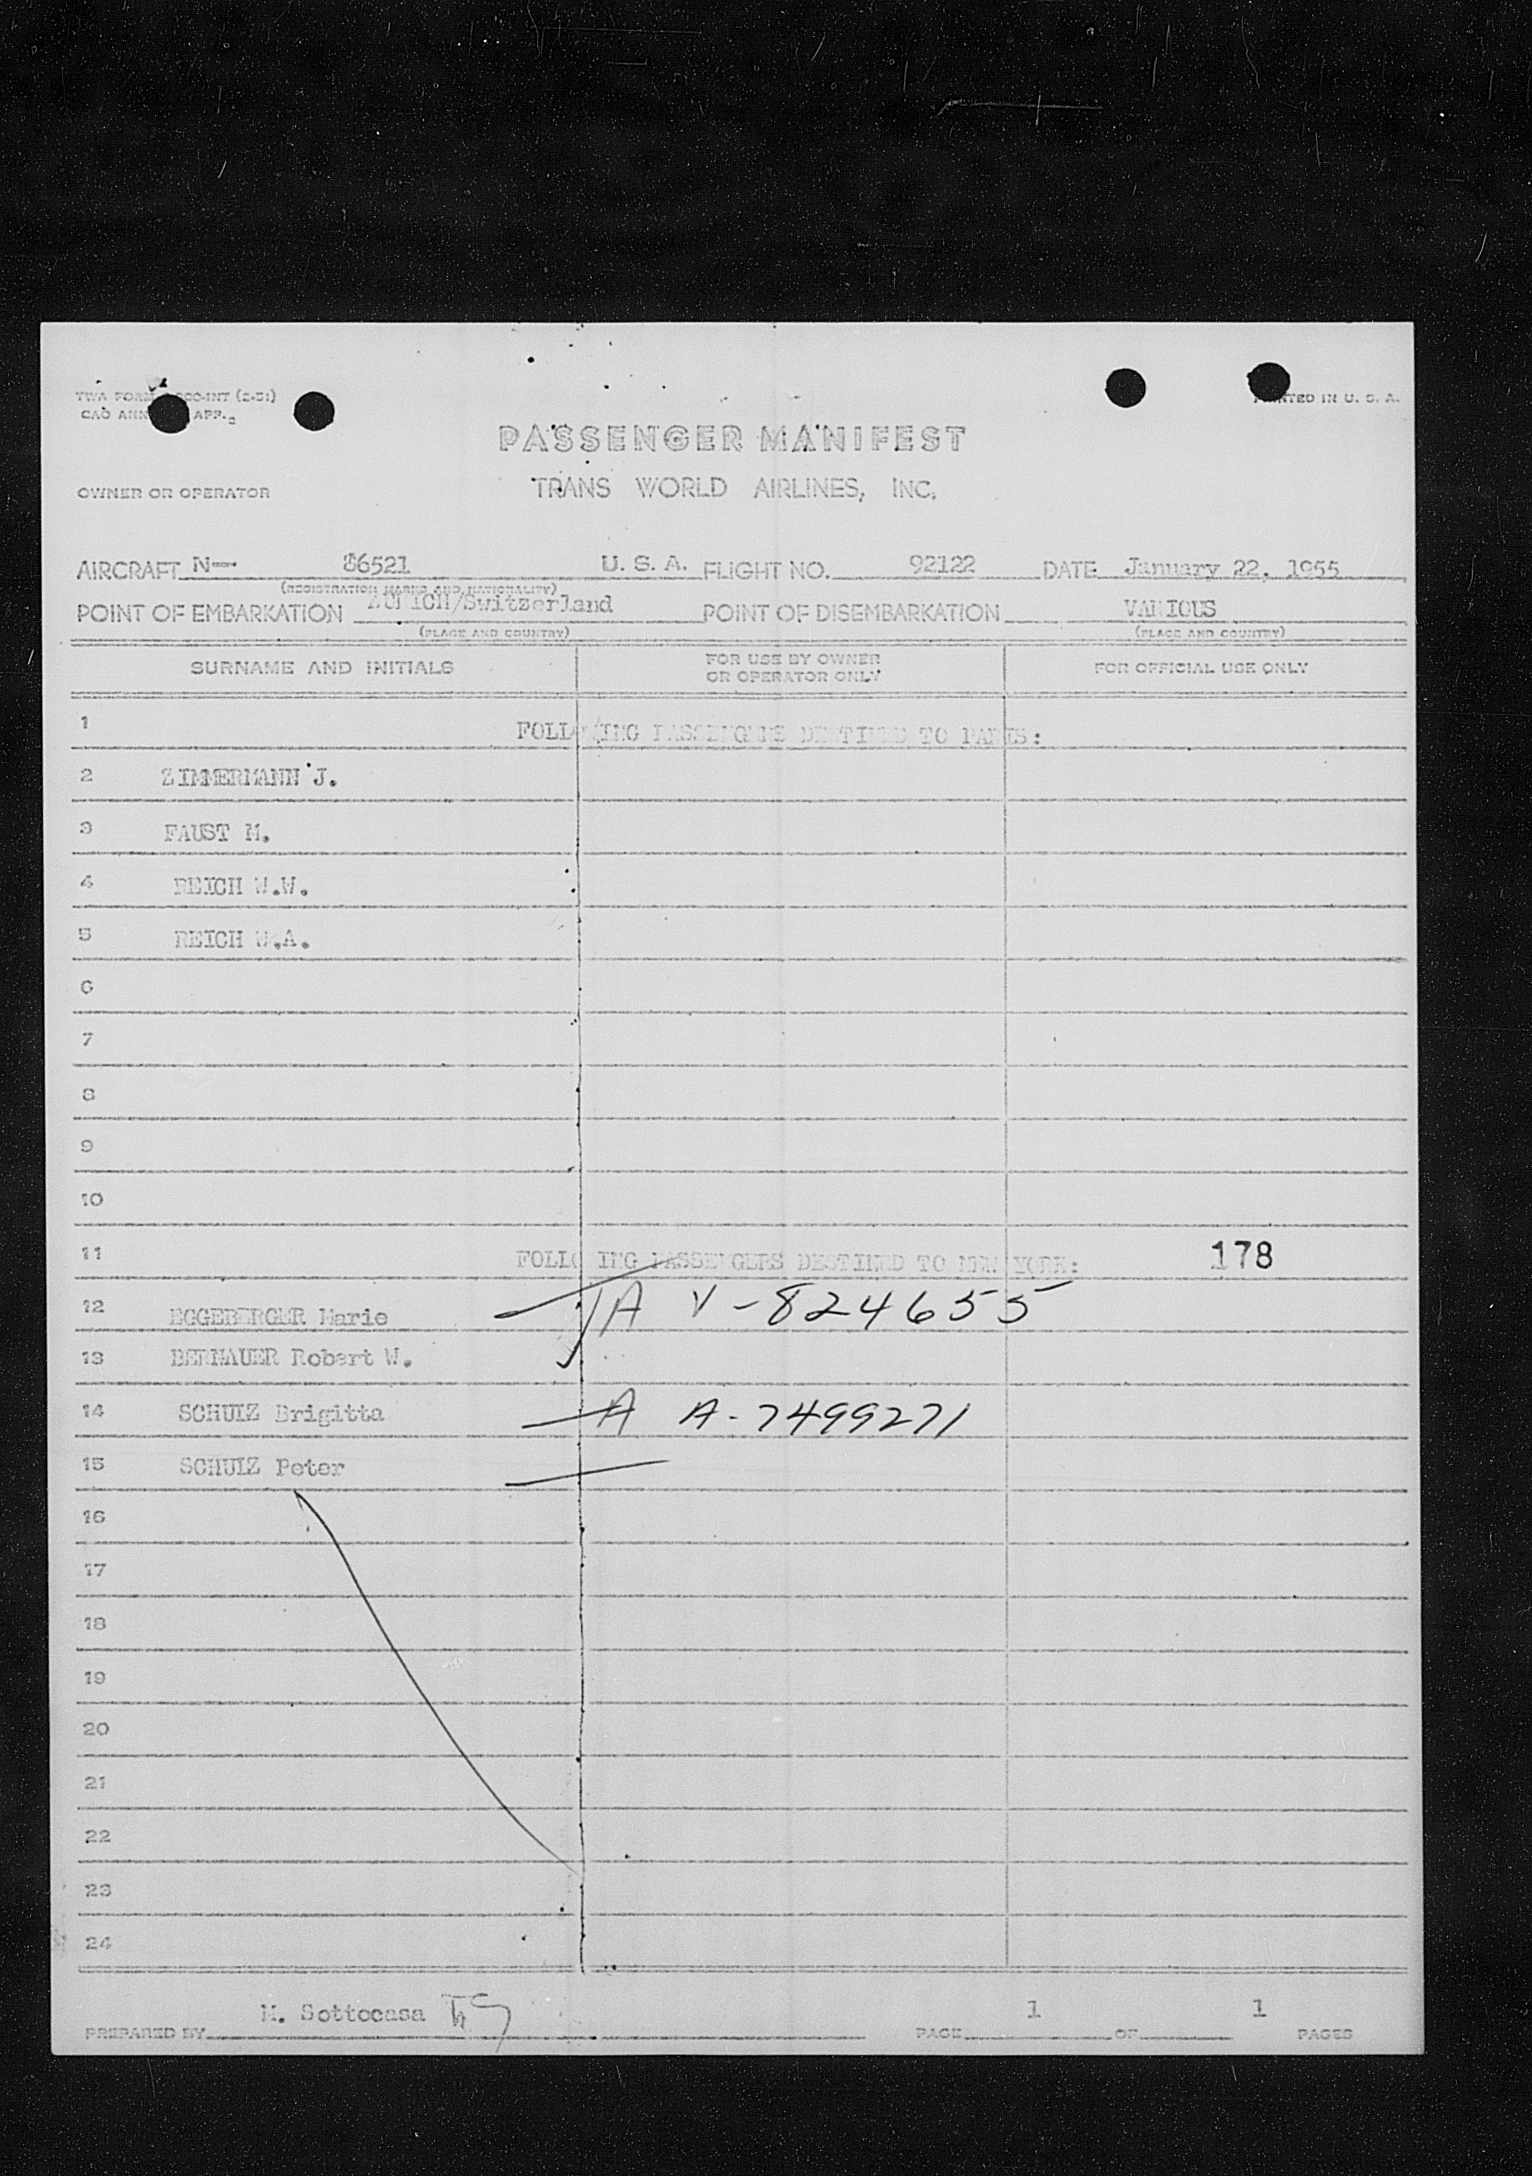 TWA FORM (2-51) PRINTED IN U. S. A.
CAO ANN APR.
PASSENGER MANIFEST
OWNER OR OPERATOR TRANS WORLD AIRLINES, INC.
AIRCRAFT N-- 86521 U. S. A. FLIGHT NO. 92122 DATE January 22, 1955
(REGISTRATION MARKS AND NATIONALITY)
POINT OF EMBARKATION ZURICH/Switzerland POINT OF DISEMBARKATION VARIOUS
(PLACE AND COUNTRY) (PLACE AND COUNTRY)
SURNAME AND INITIALS FOR USE BY OWNER OR OPERATOR ONLY FOR OFFICIAL USE ONLY
1 FOLLOWING PASSENGERS DESTINED TO PARIS:
2 ZIMMERMANN J.
3 FAUST M.
4 REICH W.W.
5 REICH W.A.
6
7
8
9
10
11 FOLLOWING PASSENGERS DESTINED TO NEW YORK: 178
12 EGGEBERGER Marie A V-824655
13 BERNAUER Robert W.
14 SCHULZ Brigitta A A-7499271
15 SCHULZ Peter
16
17
18
19
20
21
22
23
24
PREPARED BY M. Sottocasa PAGE 1 OF 1 PAGES